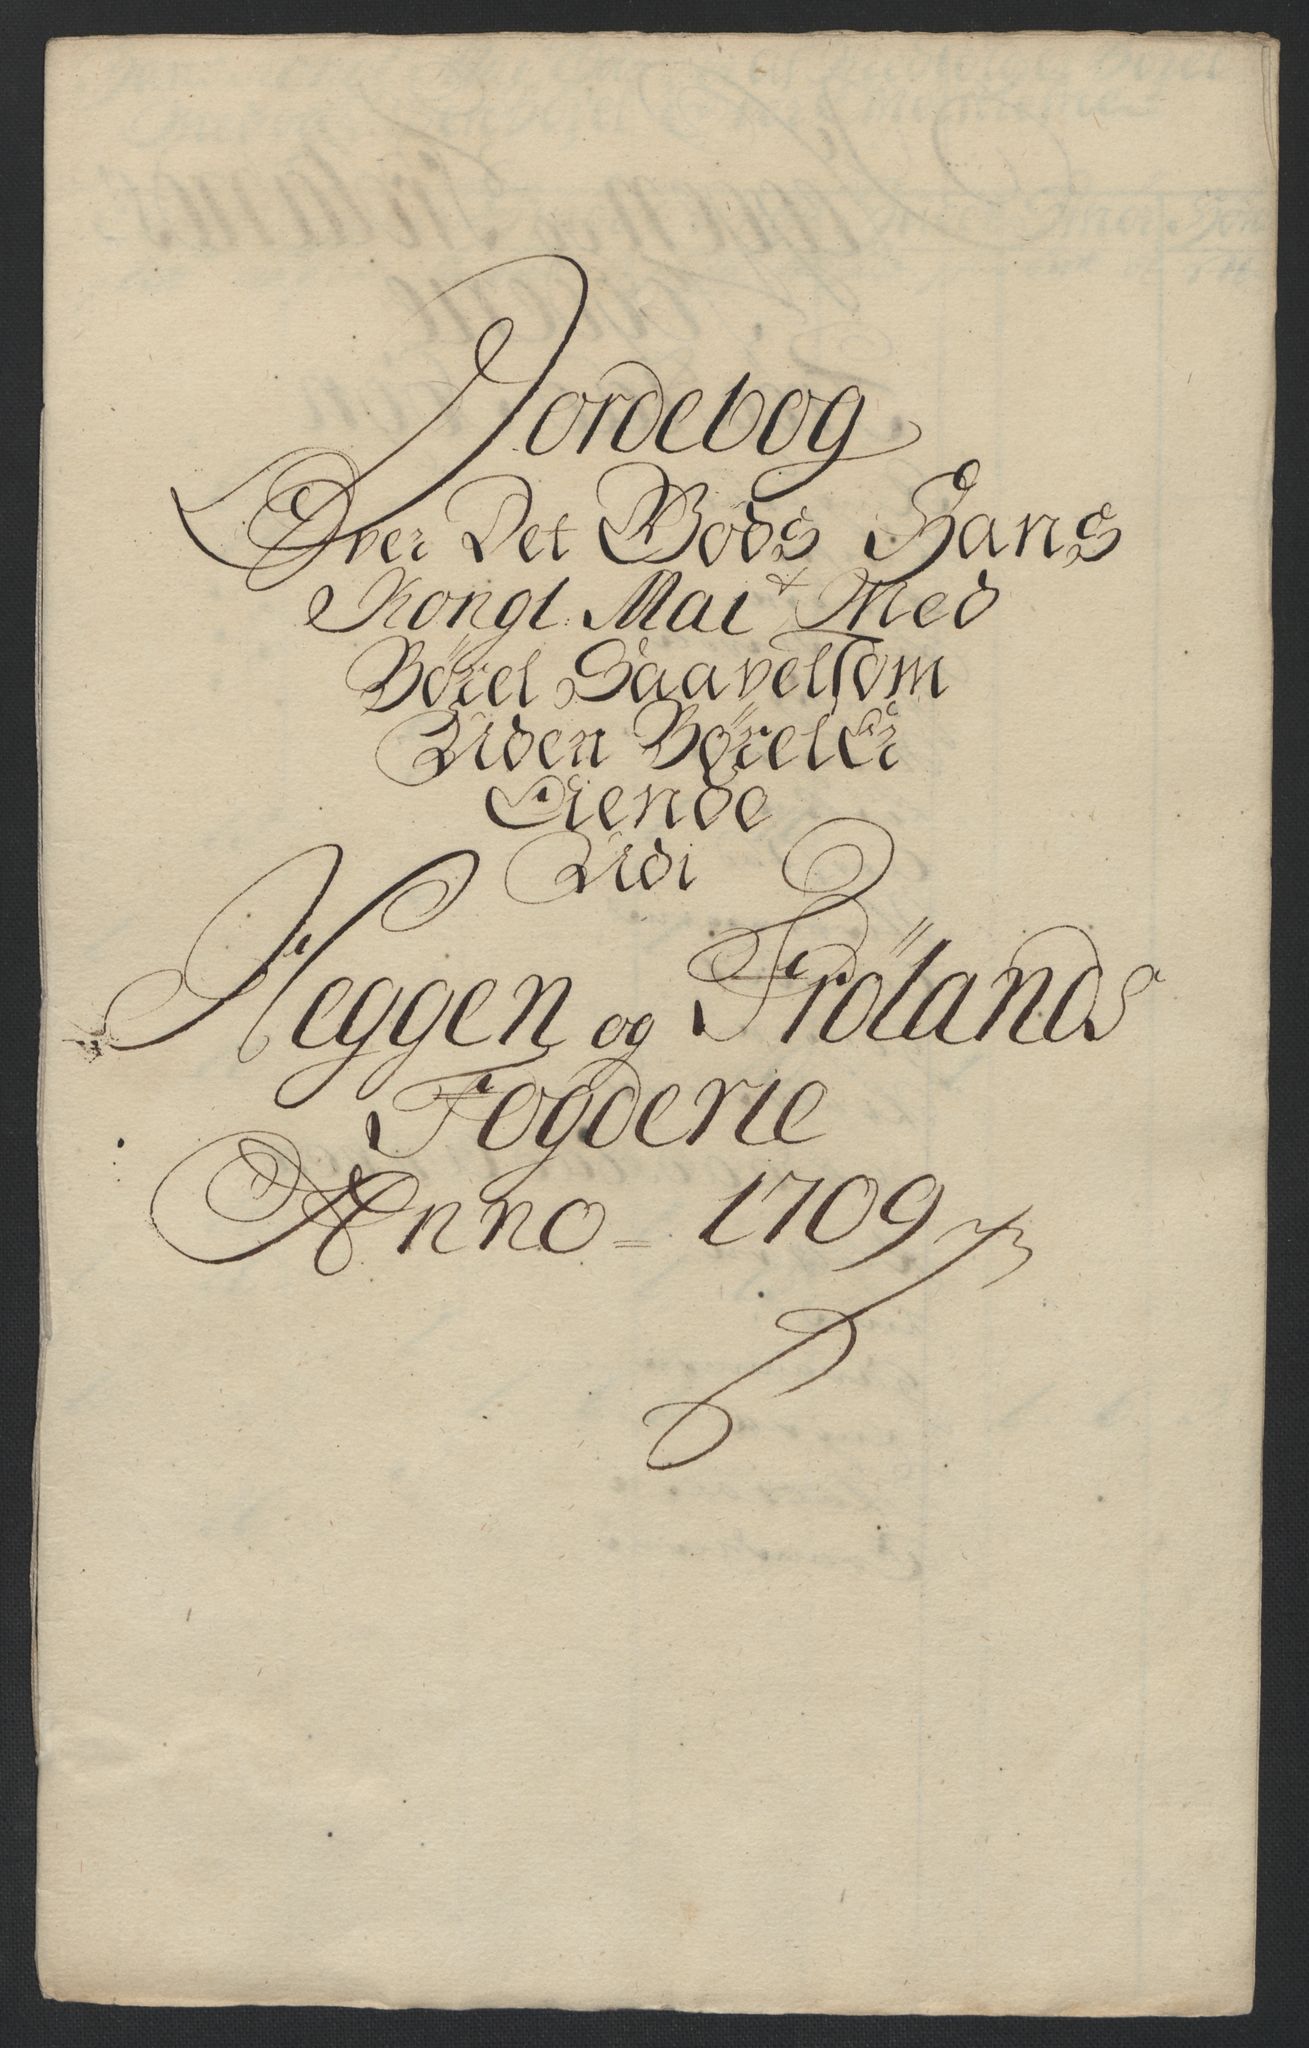 Jordebog
Over Det Gods Hans
Kongl: Mait Med
Böxel Saavelsom
Uden Böxel Er
Eiende
Udi
Heggen og Frölands
Fogderie
Anno = 1709